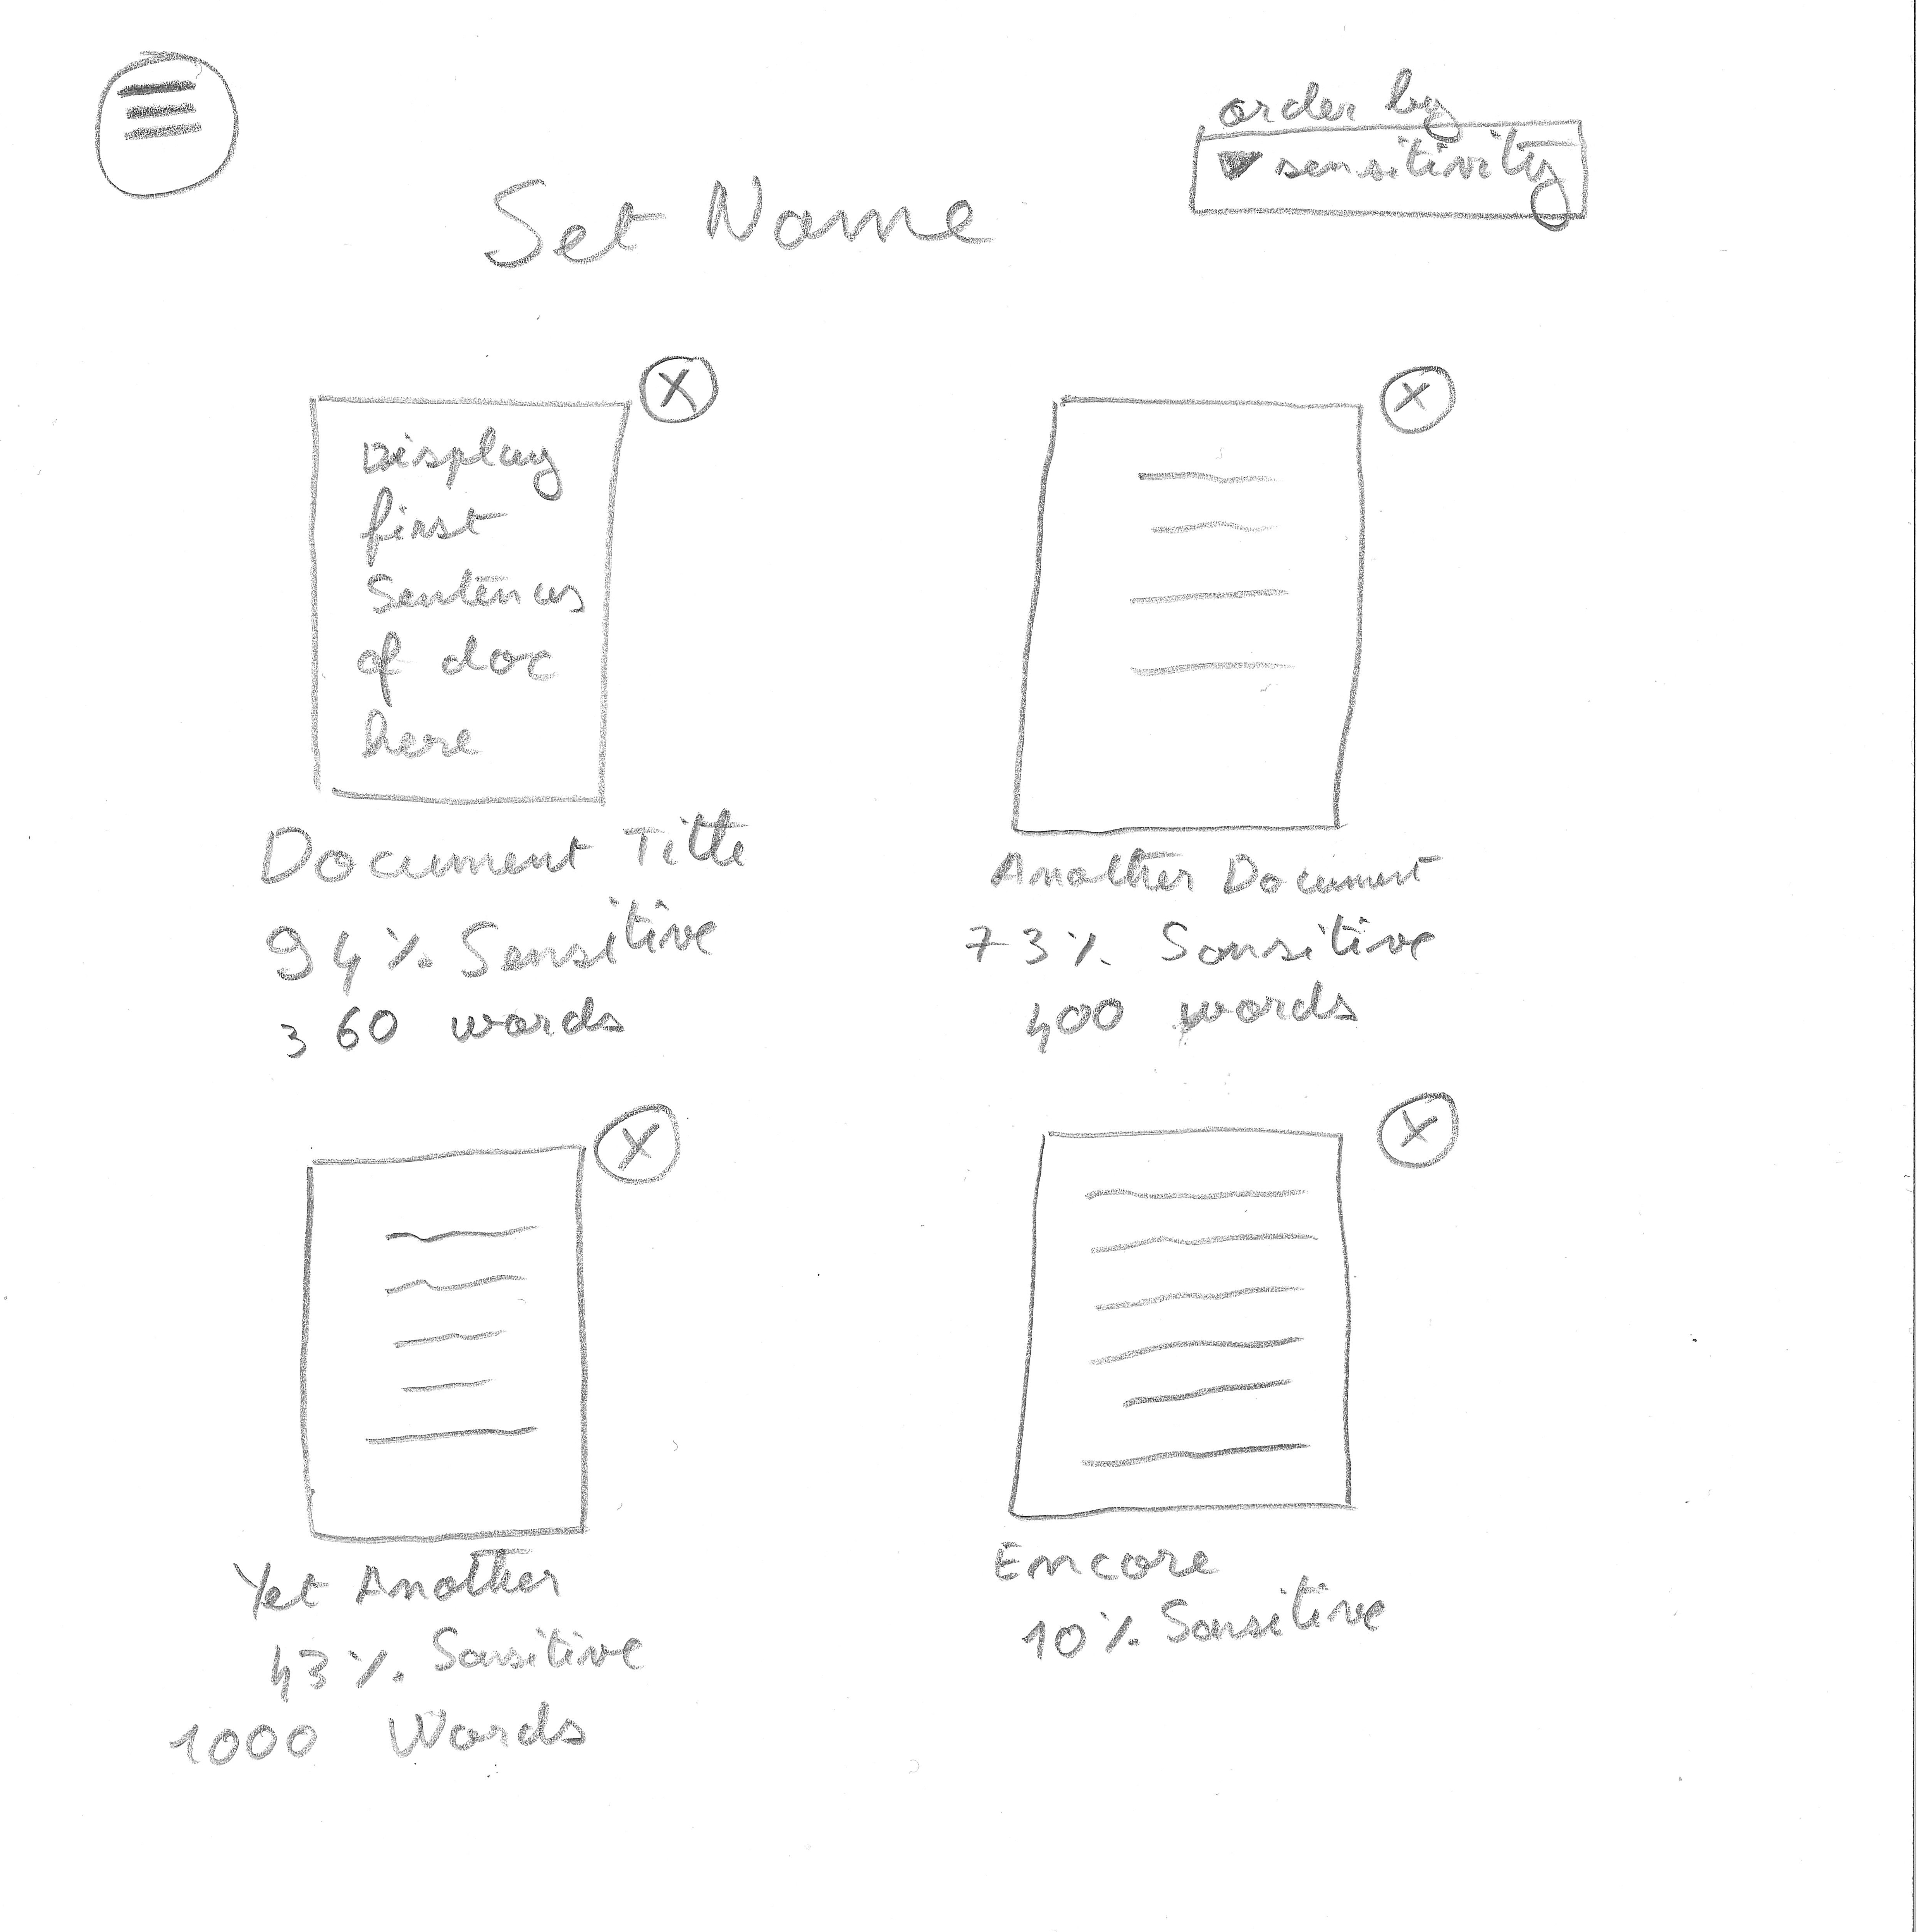 order by
▼ sensitivity
Set Name
X
X
Display
first
Sentences
of doc
here
Document Title
94% Sensitive
360 words
Another Document
73% Sensitive
400 words
X
X
Yet Another
43% Sensitive
1000 Words
Encore
10% Sensitive